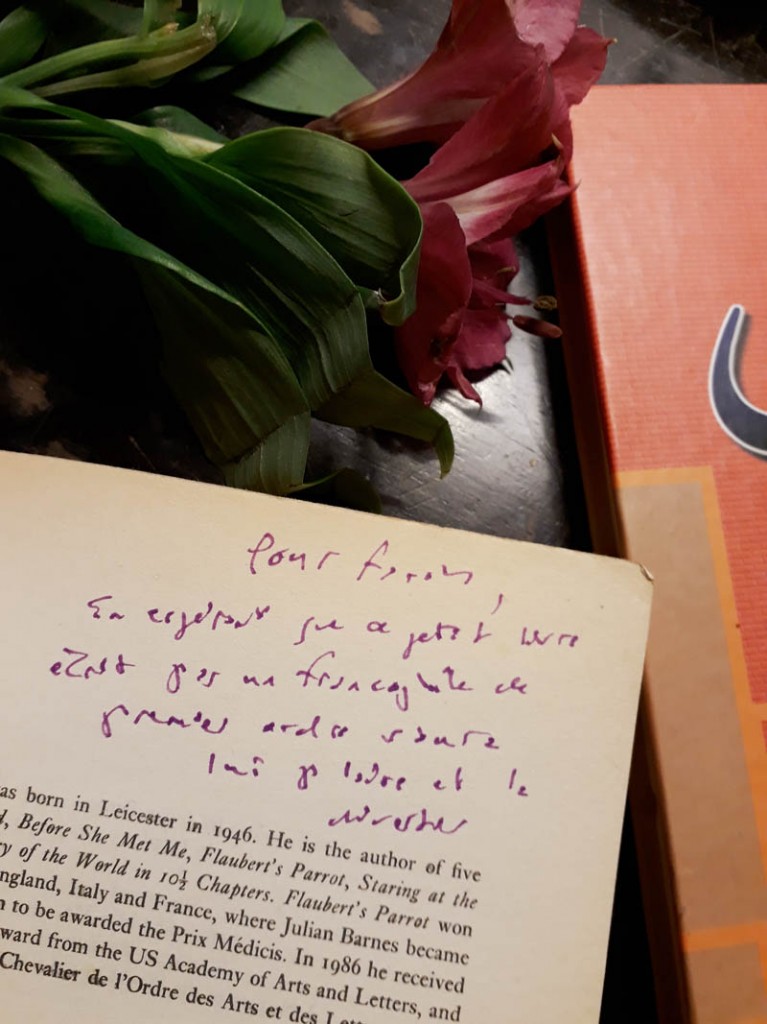 Pour
En espérant que ce petit livre
écrit par un francophile de
premier ordre saura
lui plaire et le
divertir
as born in Leicester in 1946. He is the author of five
d, Before She Met Me, Flaubert's Parrot, Staring at the
ry of the World in 10½ Chapters. Flaubert's Parrot won
ngland, Italy and France, where Julian Barnes became
n to be awarded the Prix Médicis. In 1986 he received
ward from the US Academy of Arts and Letters, and
Chevalier de l'Ordre des Arts et des Lett